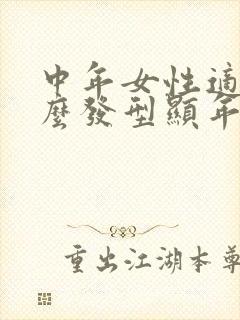 中年女性適
麼發型顯年
重出江湖本尊